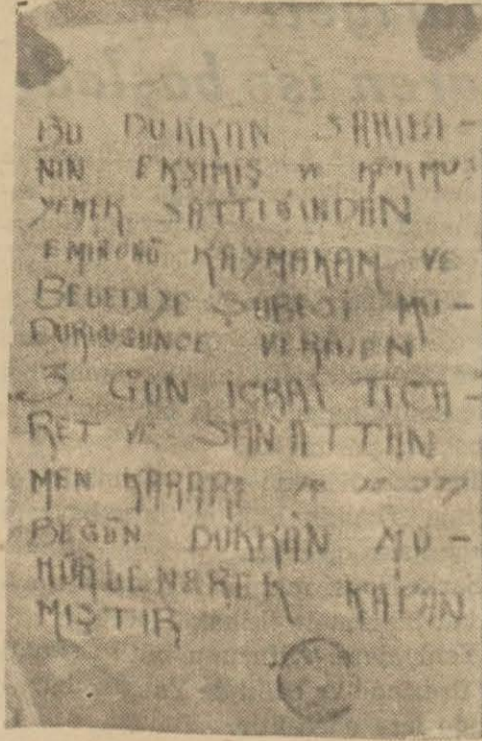 BU DUKKAN SAHIBI-
NIN EKŞIMIŞ VE KOKMUŞ
YEMEK SATTIĞINDAN
EMINÖNÜ KAYMAKAM VE
BELEDIYE ŞUBESI MÜ-
DÜRLÜGÜNCE VERILEN
3. GÜN ICRAI TICA-
RET VE SANATTAN
MEN KARARI
BUGÜN DÜKKAN MÜ-
HÜRLENEREK KAPAN
MIŞTIR